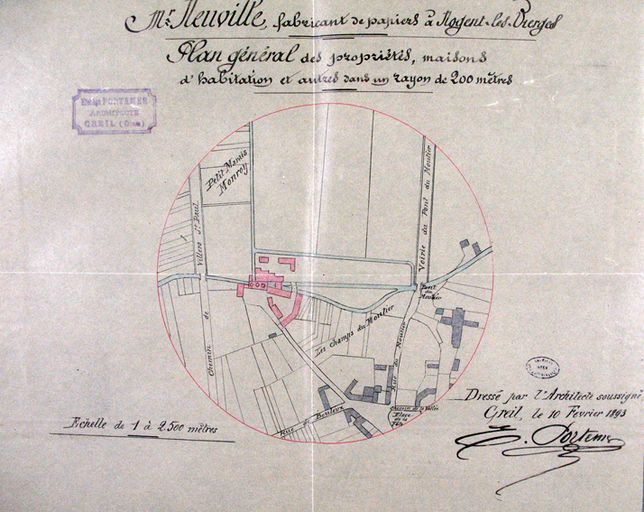 Mr. Neuville, fabricant de papiers à Nogent-les-Vierges
Plan général des propriétés, maisons
d'habitation et autres dans un rayon de 200 mètres
PORTEMER
ARCHITECTE
CREIL (Oise)
Petit Marais
Monroy
Chemin de Villers St Paul
Voirie du Pont du Moutier
Pont
du
Moutier
Les Champs du Moutier
Rue du Moutier
Chemin de la Vallée
Place
de la
Fête
Echelle de 1 à 2.500 mètres
Dressé par l'Architecte soussigné
Creil, le 10 Février 1893
E. Portemer